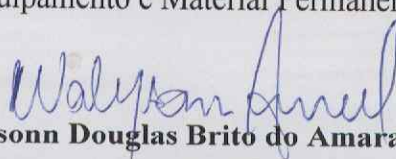 uipamento e Material Permanen
Walysonn Amaral
sonn Douglas Brito do Amara